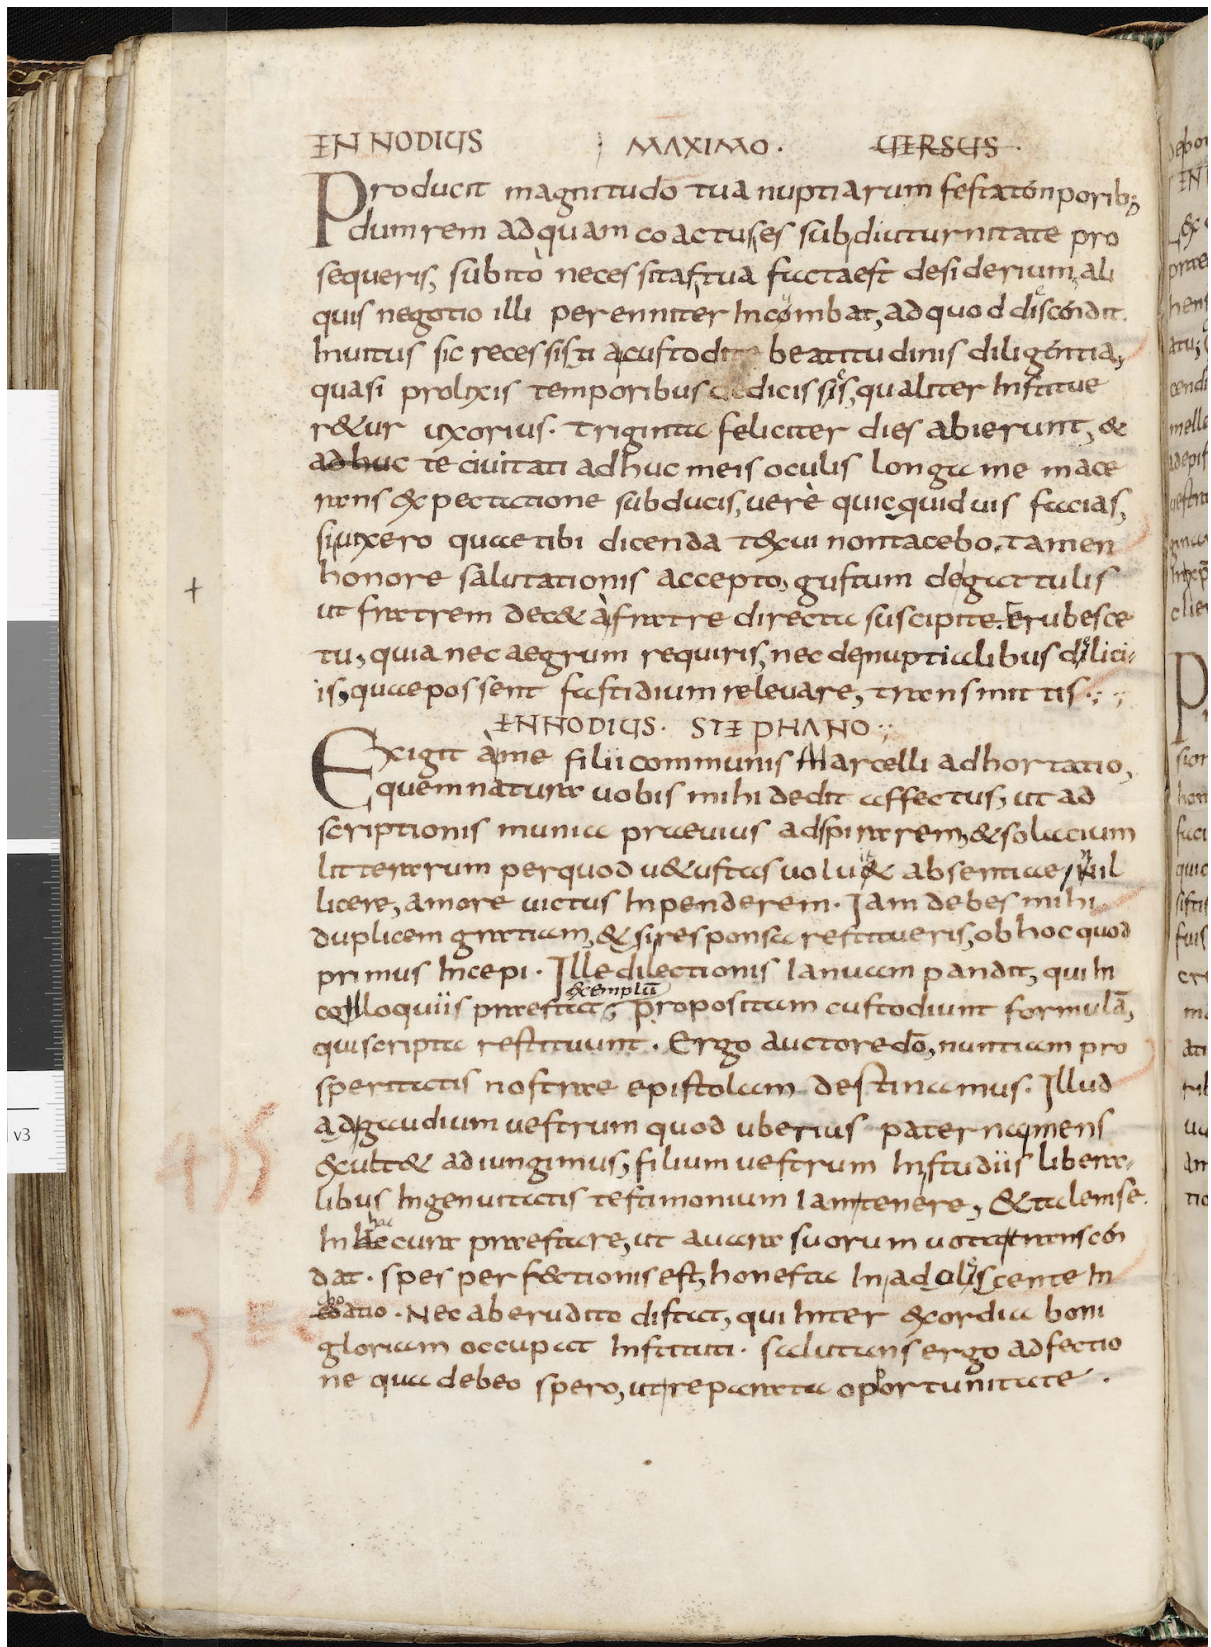 ENNODIUS MAXIMO. UERSUS.
Producit magnitudo tua nuptiarum festa tonporib;
dum rem ad quam coactus es sub diuturnitate pro
sequeris, subito necessitas tua facta est desiderium, ali
quis negotio illi perenniter incombat, ad quod discondit
inuitus sic recessisti a custodite beatitudinis diligentia,
quasi prolixis temporibus dedicissis, qualiter institue
r&ur uxorius. Triginta feliciter dies abierunt, &
adhuc te ciuitati adhuc meis oculis longa me mace
rans expectatione subducis, uere quicquid uis facias,
si uixero quae tibi dicenda t&xui non tacebo. Tamen
honore salutationis accepto, gustum de gattulis
ut fratrem dec& a fratre directa suscipite. Erubesce
tu, quia nec aegrum requiris, nec de nuptialibus dilici-
is, quae possent fastidium releuare, transmittis.;
ENNODIUS. STEPHANO;
Exigit a me filii communis Marcelli adhortatio,
quem natura uobis mihi dedit affectus, ut ad
scriptionis munia praeuius adspirarem, & solacium
litterarum per quod u&ustas uolu& absentiae nil
licere, amore uictus inpenderem. Iam debes mihi
duplicem gratiam, & si responsa restitueris, ob hoc quod
primus incepi. Ille dilectionis ianuam pandit, qui in
exemplū
colloquiis praestat; propositam custodiunt formulā,
qui scripta restituunt. Ergo auctore dō, nuntiam pro
speritatis nostrae epistolam destinamus. Illud
ad gaudium uestrum quod uberius paterna mens
exult& adiungimus, filium uestrum in studiis libera-
libus ingenuitatis testimonium iam tenere, & talem se
hac
in hac cura praestare, ut auara suorum uota transcen
dat. spes perfectionis est, honesta in adoliscente in
choatio. Nec ab erudito distat, qui inter exordia boni
gloriam occupat instituti. salutans ergo adfectio
ne qua debeo spero, ut reparata oportunitate.